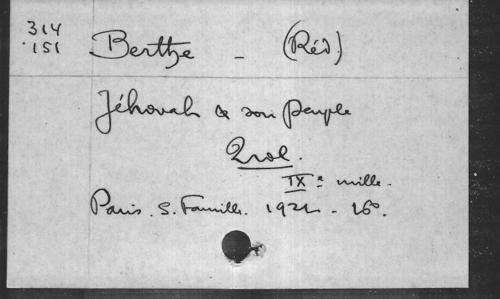 314
151
Berthe - (Réd.)
Jéhovah & son peuple
2 vol.
IXe mille.
Paris. S. Famille. 1921 - 16o.